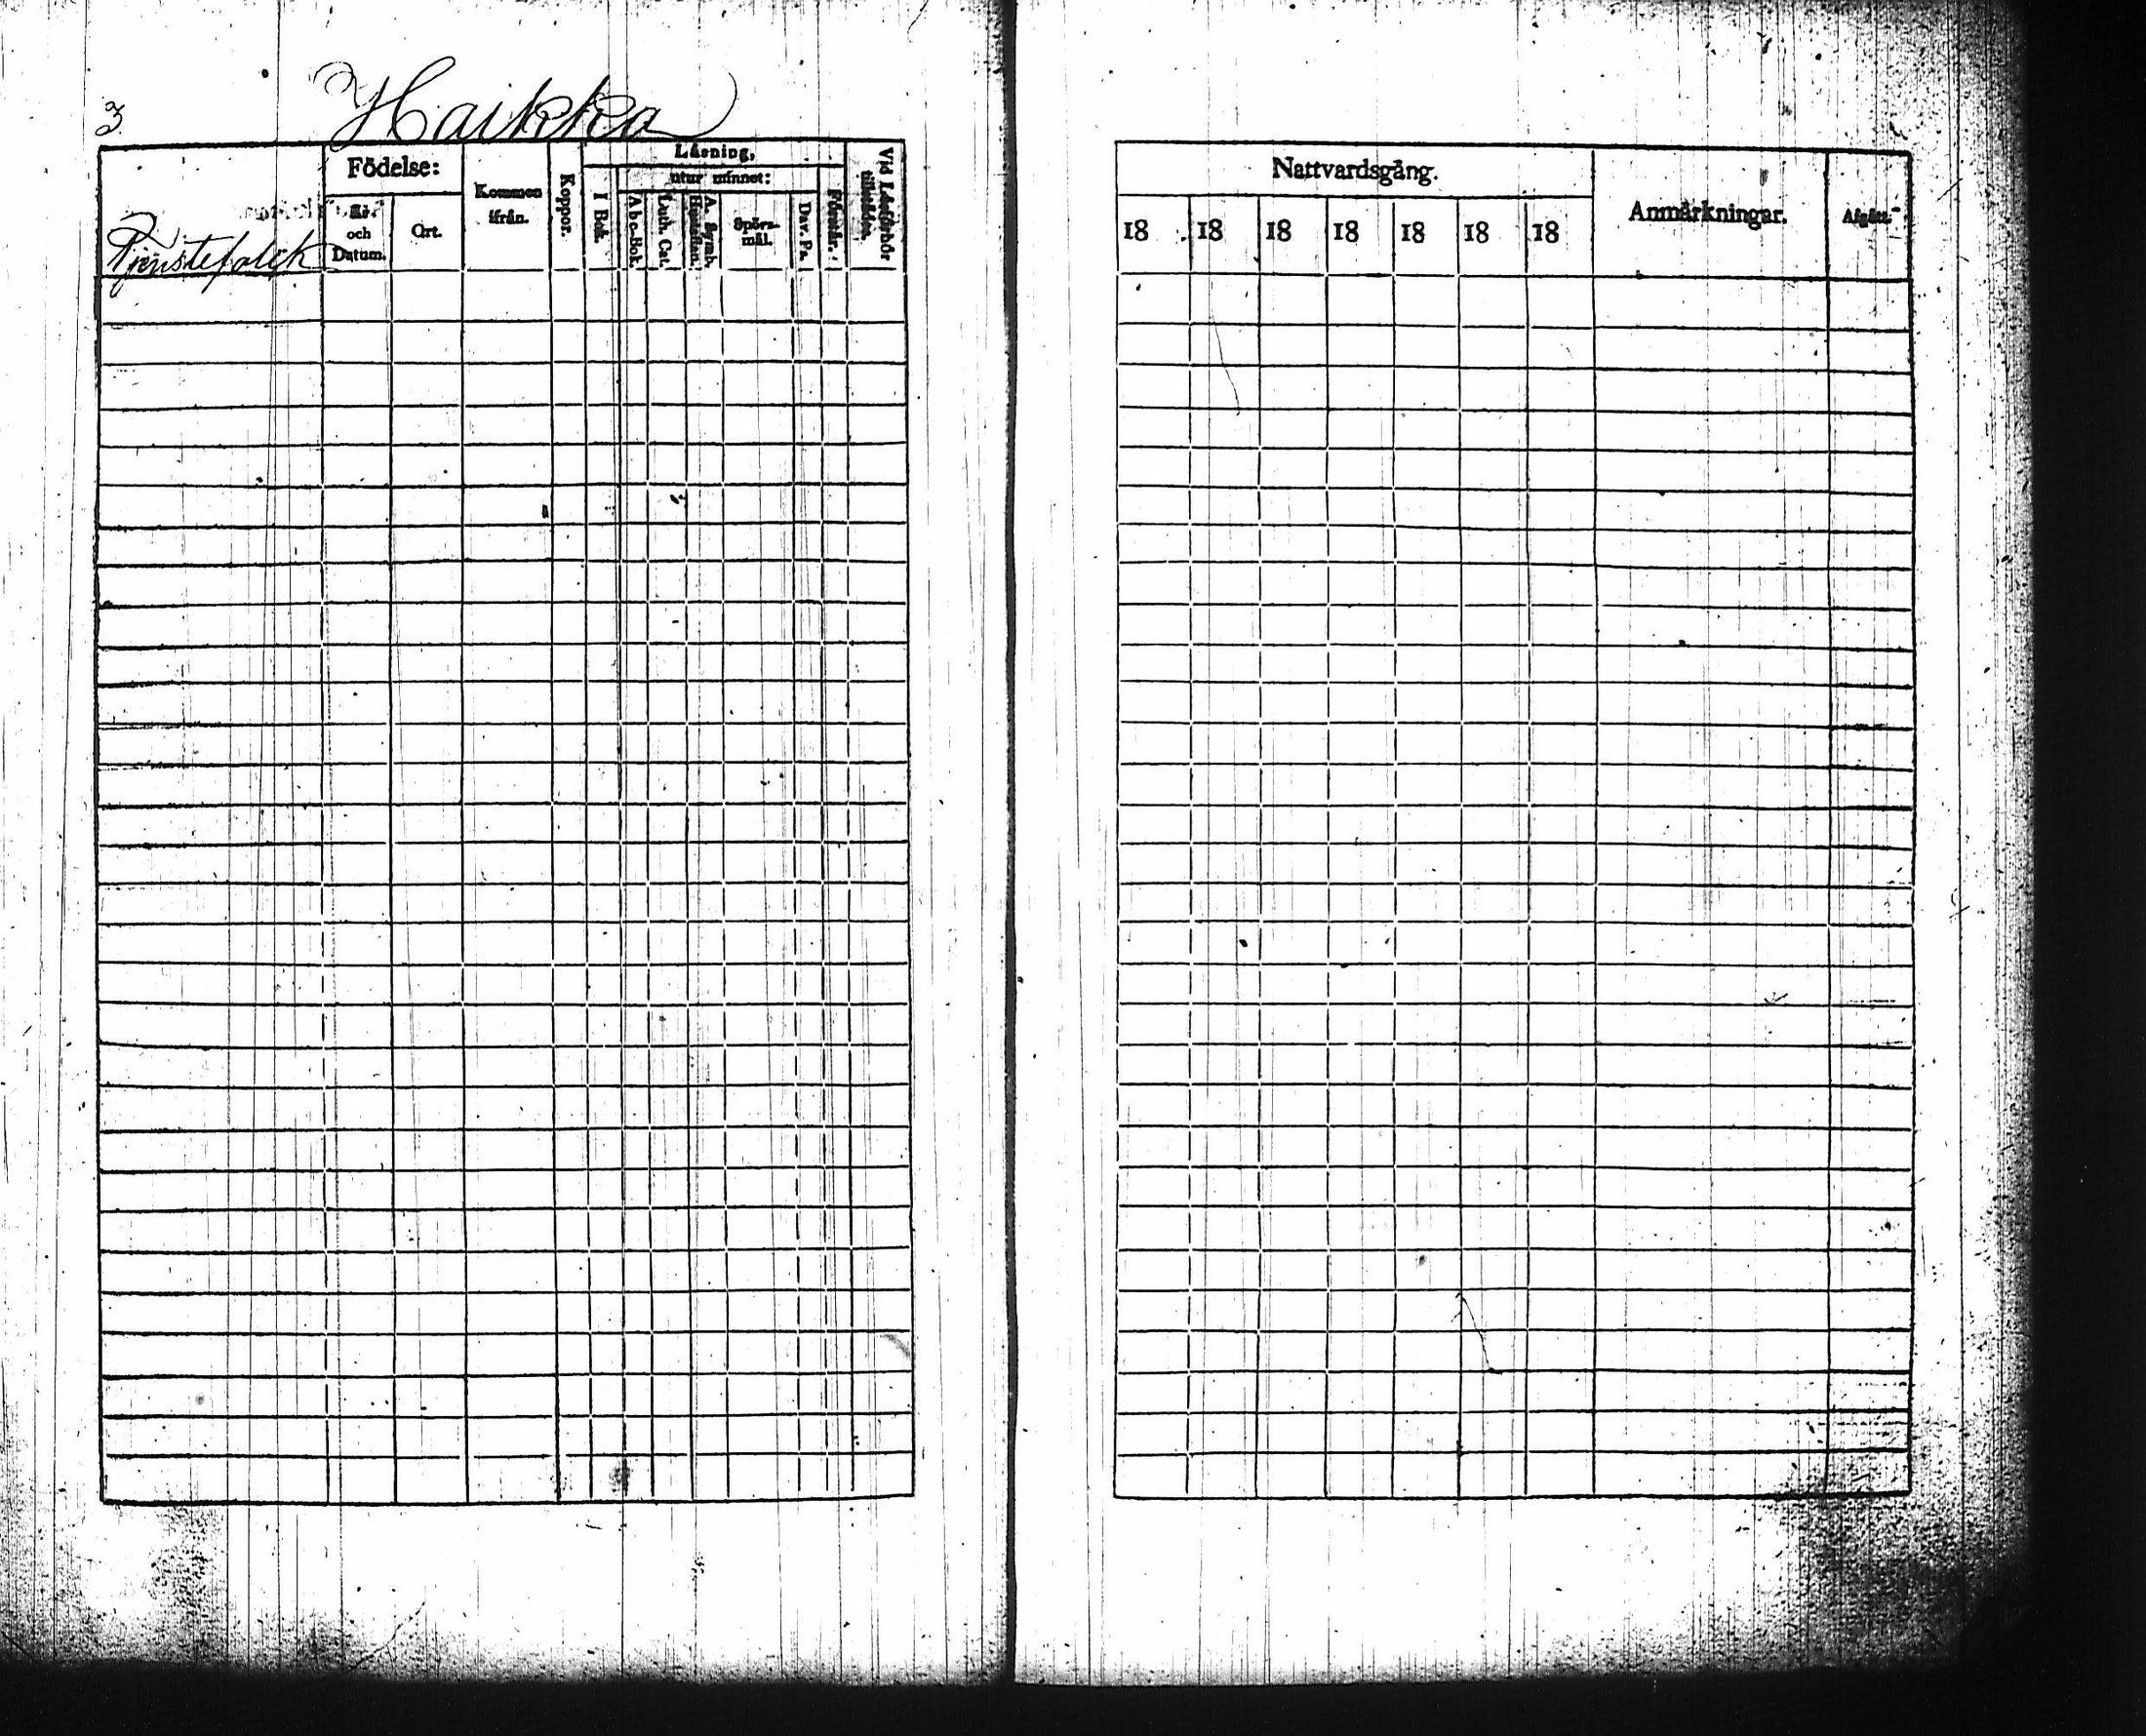 3
Haikka
Tjenstefolck
Födelse:
År och Datum.
Ort.
Kommen ifrån.
Koppor.
Läsning,
utur minnet:
I Bok.
Abc-Bok.
Luth. Cat.
A. Symb.
Spörsmål.
Dav. Ps.
Förstår.
Vid Läsförhör
Nattvardsgång.
18 18 18 18 18 18 18
Anmärkningar.
Afgått.